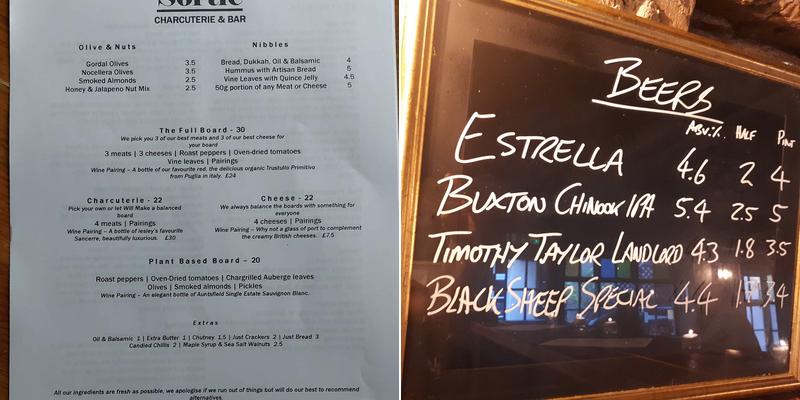 Sortie
CHARCUTERIE & BAR
Olive & Nuts
Gordal Olives 3.5
Nocellera Olives 3.5
Smoked Almonds 2.5
Honey & Jalapeno Nut Mix 2.5
Nibbles
Bread, Dukkah, Oil & Balsamic 4
Hummus with Artisan Bread 5
Vine Leaves with Quince Jelly 4.5
50g portion of any Meat or Cheese 5
The Full Board - 30
We pick you 3 of our best meats and 3 of our best cheese for
your board
3 meats | 3 cheeses | Roast peppers | Oven-dried tomatoes
Vine leaves | Pairings
Wine Pairing – A bottle of our favourite red, the delicious organic Trustullo Primitivo
from Puglia in Italy. £24
Charcuterie - 22
Pick your own or let Will Make a balanced
board
4 meats | Pairings
Wine Pairing – A bottle of lesley's favourite
Sancerre, beautifully luxurious. £30
Cheese - 22
We always balance the boards with something for
everyone
4 cheeses | Pairings
Wine Pairing – Why not a glass of port to complement
the creamy British cheeses. £7.5
Plant Based Board - 20
Roast peppers | Oven-Dried tomatoes | Chargrilled Auberge leaves
Olives | Smoked almonds | Pickles
Wine Pairing – An elegant bottle of Auntsfield Single Estate Sauvignon Blanc.
Extras
Oil & Balsamic 1 | Extra Butter 1 | Chutney 1.5 | Just Crackers 2 | Just Bread 3
Candied Chillis 2 | Maple Syrup & Sea Salt Walnuts 2.5
All our ingredients are fresh as possible, we apologise if we run out of things but will do our best to recommend
alternatives.
BEERS
ABV.% HALF PINT
ESTRELLA 4.6 2 4
BUXTON CHINOOK IPA 5.4 2.5 5
TIMOTHY TAYLOR LANDLORD 4.3 1.8 3.5
BLACK SHEEP SPECIAL 4.4 1.7 3.4